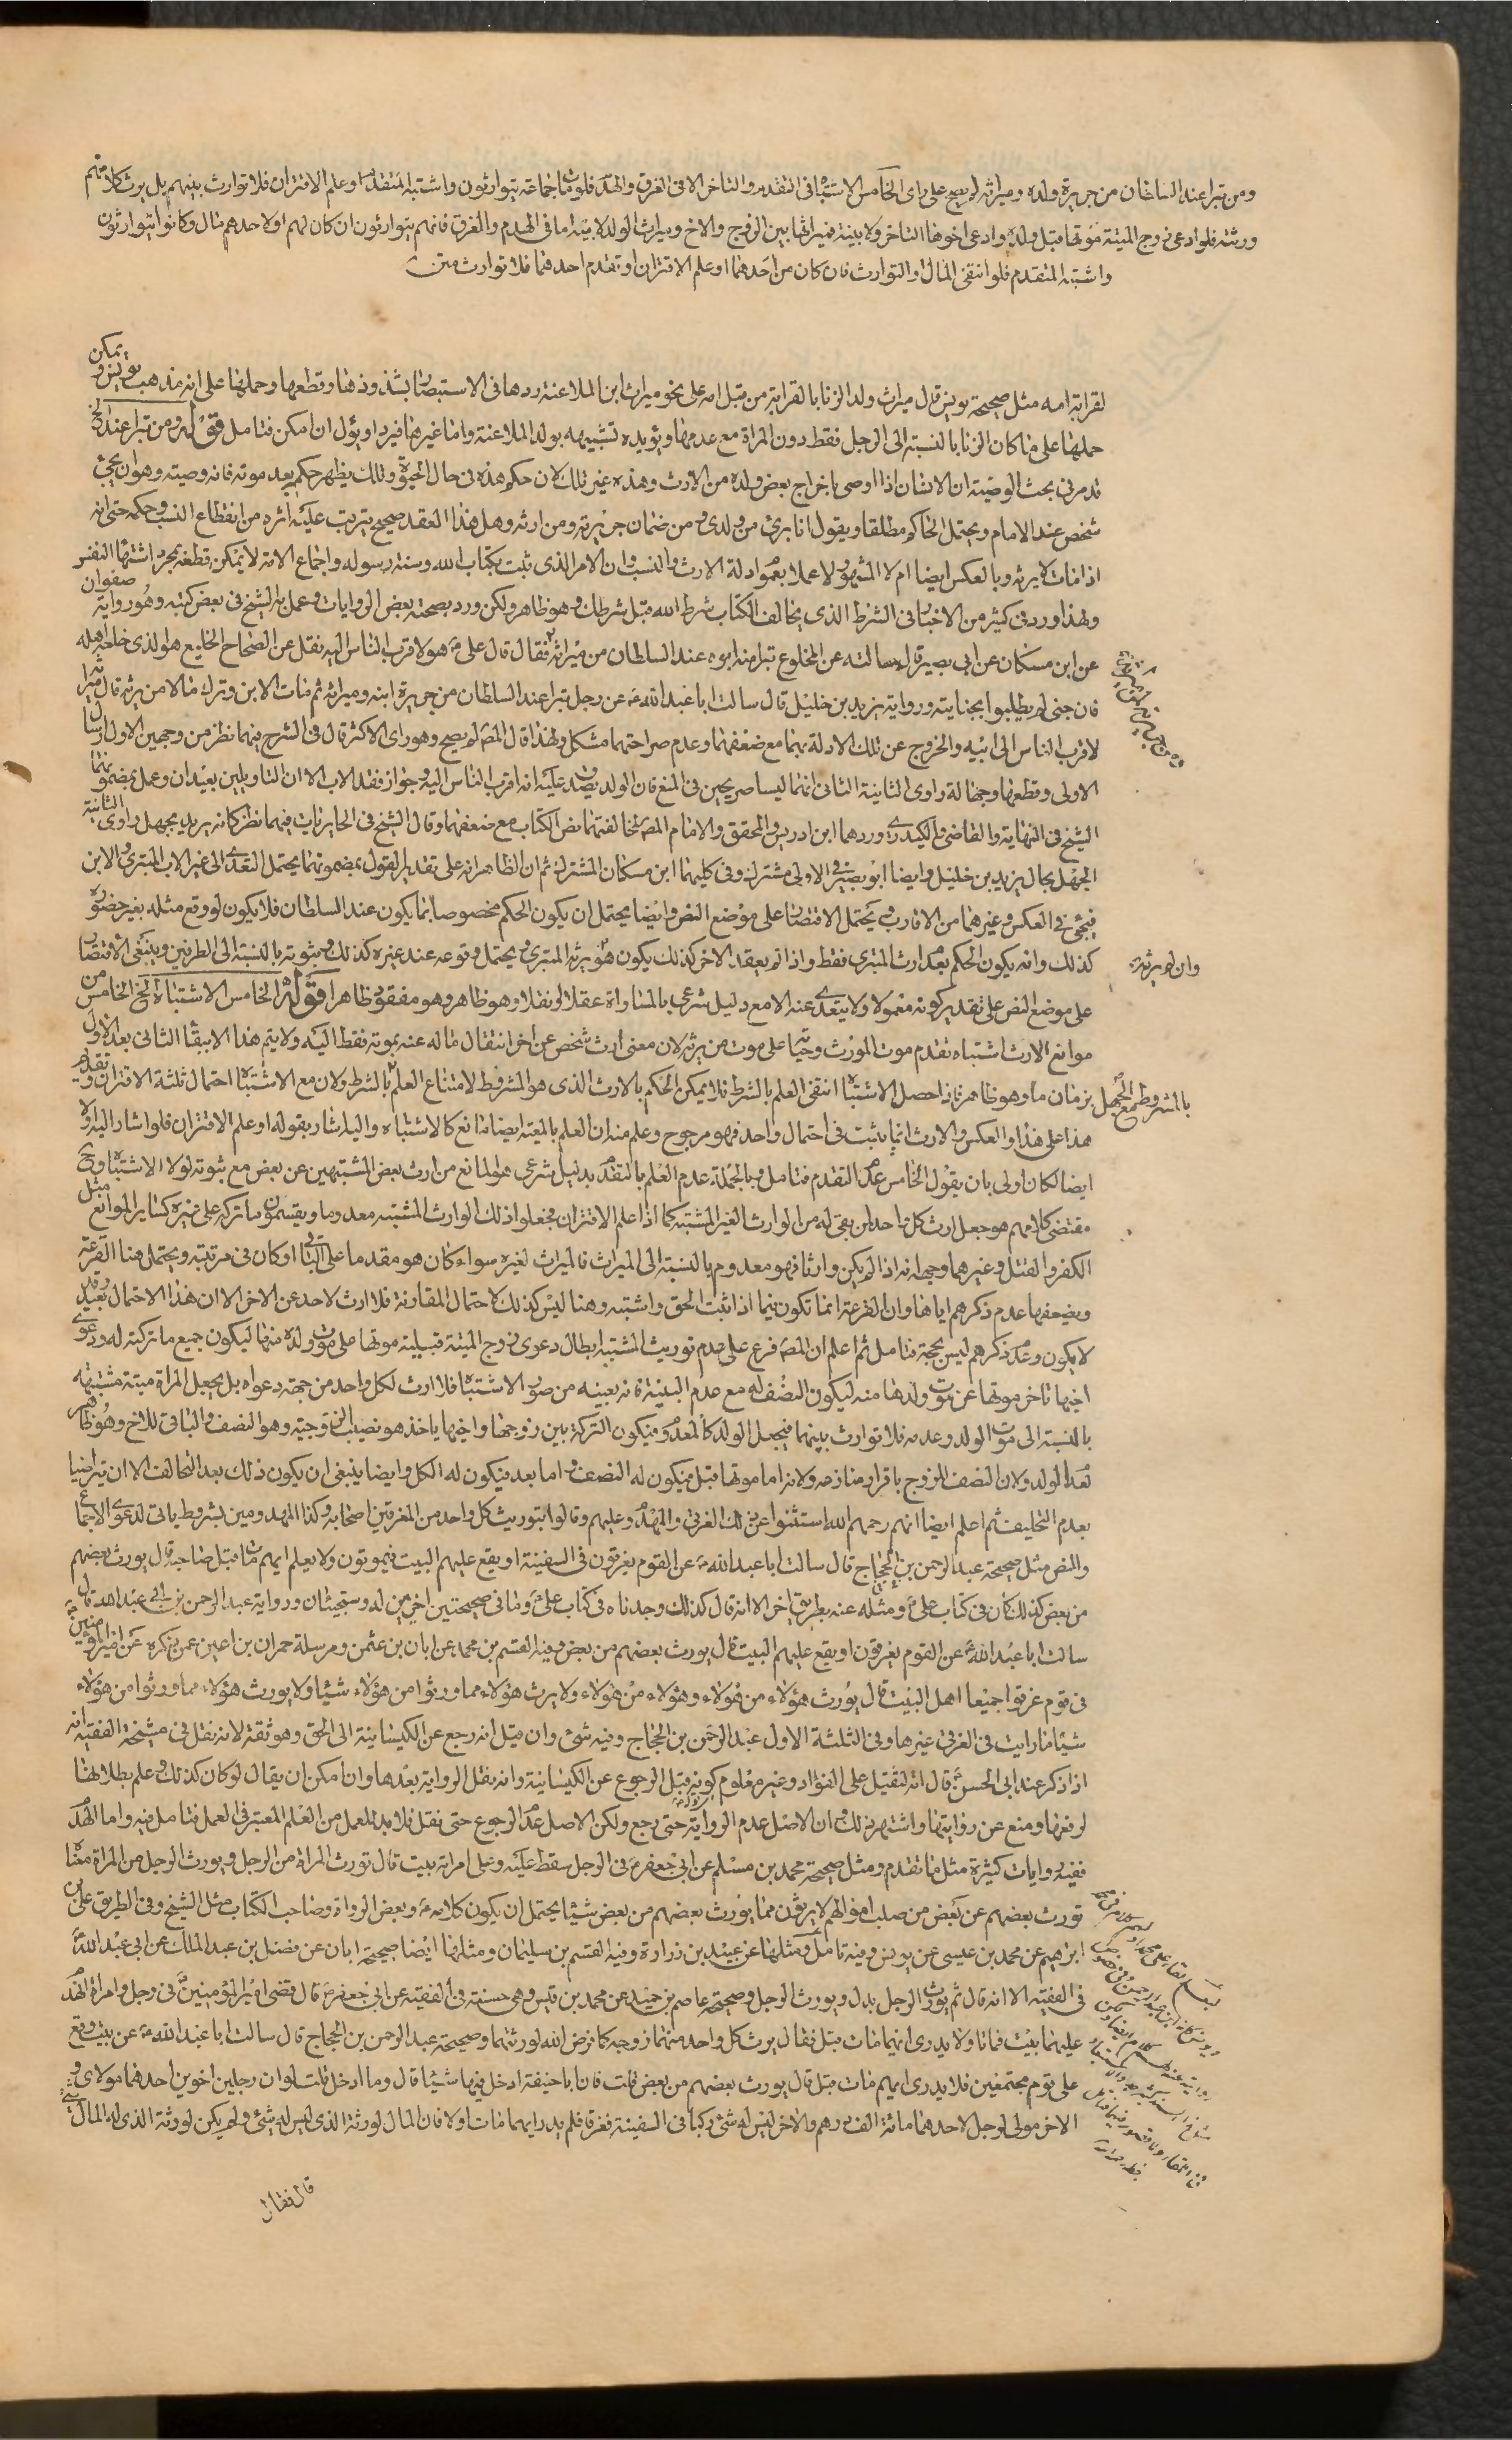 ومن تبرا عند السلطان من جريرة ولده وميراثه لم يصح على راى الخامس الاشتباه فى التقدم والتاخر الا فى الغرق والهدم فلو مات جماعة يتوارثون واشتبه المتقدم او علم الاقتران فلا توارث بينهم بل يرث كلا منهم
ورثته فلو ادعى زوج الميتة موتها قبل ولده وادعى اخوها التاخر ولا بينة فميراثها بين الزوج والاخ وميراث الولد لابيه اما فى الهدم والغرق فانهم يتوارثون ان كان لهم او لاحدهم مال وكانوا يتوارثون
واشتبه المتقدم فلو انتفى المال او التوارث فان كان من احدهما او علم الاقتران او تقدم احدهما فلا توارث متن
لقرابة امه مثل صحيحة يونس قال ميراث ولد الزنا بالقرابة من قبل امه على نحو ميراث ابن الملاعنة ردها فى الاستبصار بشذوذها وقطعها وحملها على انه مذهب يونس ويمكن
حملها على ما كان الزنا بالنسبة الى الرجل فقط دون المراة مع عدمها ويؤيده تشبيهه بولد الملاعنة واما غيرها فيرد او يؤل ان امكن فتامل قوله ومن تبرا عند الخ
قد مر فى بحث الوصية ان الانسان اذا اوصى باخراج بعض ولده من الارث وهذه غير تلك لان حكم هذه فى حال الحيوة وتلك يظهر حكم بعد موته فانه وصيته وهو ان يجئ
شخص عند الامام ويحتمل الحاكم مطلقا ويقول انا برئ من ولدى ومن ضمان جريرته ومن ارثه وهل هذا العقد صحيح يترتب عليه اثره من انقطاع النسب وحكمه حتى انه
اذا مات لا يرثه وبالعكس ايضا ام لا المشهور لا عملا بعموم ادلة الارث والنسب وان الامر الذى ثبت بكتاب الله وسنة رسوله واجماع الامة لا يمكن قطعه بمجرد اشتهاء النفس
ولهذا ورد فى كثير من الاخبار فى الشرط الذى يخالف الكتاب شرط الله قبل شرطك وهو ظاهر ولكن ورد بصحته بعض الروايات وعمل به الشيخ فى بعض كتبه وهو رواية صفوان
عن ابن مسكان عن ابى بصير قال سالته عن المخلوع تبرا منه ابوه عند السلطان من ميراثه فقال قال على هو لاقرب الناس اليه نقل عن الصحاح الخليع هو الذى خلعه اهله
فان جنى لم يطلبوا بجنايته ورواية يزيد بن خليل قال سالت ابا عبد الله عن رجل تبرا عند السلطان من جريرة ابنه وميراثه ثم مات الابن وترك مالا من يرثه قال ميراثه
لاقرب الناس الى ابيه والخروج عن تلك الادلة بهما مع ضعفهما وعدم صراحتهما مشكل ولهذا قال المص لم يصح وهو راى الاكثر قال فى الشرح فيهما نظر من وجهين الاول ارسال
الاولى وقطعها وجهالة راوى الثانية الثانى انهما ليسا صريحين فى المنع فان الولد يصدق عليه انه اقرب الناس اليه وجواز فقد الاب الا ان التاويلين بعيدان وعمل بمضمونهما
الشيخ فى النهاية والقاضى والكيدرى وردهما ابن ادريس والمحقق والامام المص لمخالفتهما نص الكتاب مع ضعفهما وقال الشيخ فى الحايريات فيهما نظر كانه يريد بمجهل راوى الثانية
الجهل بحال يزيد بن خليل وايضا ابو بصير فى الاولى مشترك وفى كليهما ابن مسكان المشترك ثم ان الظاهر انه على تقدير القول بمضمونهما يحتمل التعدى الى غير الاب المتبرى والابن
فيجئ فى العكس وغيرهما من الاقارب ويحتمل الاقتصار على موضع النص وايضا يحتمل ان يكون الحكم مخصوصا بما يكون عند السلطان فلا يكون لو وقع مثله بغير حضوره
كذلك وانه يكون الحكم بعدم ارث المتبرى فقط واذا لم يعقد الاخر كذلك يكون هو يرثه المتبرى ويحتمل وقوعه عند غيره كذلك وثبوته بالنسبة الى الطرفين وينبغى الاقتصار
وان لم يرثه
على موضع النص على تقدير كونه معمولا ولا يتعدى عنه الا مع دليل شرعى بالمساواة عقلا او نقلا وهو ظاهر وهو مفقود ظاهرا قوله الخامس الاشتباه الخ الخامس من
موانع الارث اشتباه تقدم موت المورث وحياته على موت من يرثه لان معنى ارث شخص عن اخر انتقال ماله عنه بموته فقط اليه ولا يتم هذا الا ببقاء الثانى بعد الاول
بزمان ما وهو ظاهر فاذا حصل الاشتباه انتفى العلم بالشرط فلا يمكن الحكم بالارث الذى هو المشروط لامتناع العلم بالشرط ولان مع الاشتباه احتمال ثلثة الاقتران وتقدم
بالمشروط مع الجهل
هذا على هذا والعكس والارث انما يثبت فى احتمال واحد فهو مرجوح وعلم منه ان العلم بالمعية ايضا مانع كالاشتباه واليه اشار بقوله او علم الاقتران فلو اشار اليه اولا
ايضا لكان اولى بان يقول الخامس عدم التقدم فتامل وبالجملة عدم العلم بالتقدم بدليل شرعى هو المانع من ارث بعض المشتبهين عن بعض مع ثبوته لولا الاشتباه وح
مقتضى كلامهم هو جعل ارث كل واحد لمن بقى له من الوارث الغير المشتبه كما اذا علم الاقتران فجعلوا ذلك الوارث المشتبه معدوما ويقسمون ما تركه على غيره كساير الموانع مثل
الكفر والقتل وغيرهما وجهه انه اذا لم يكن وارثا فهو معدوم بالنسبة الى الميراث فالميراث لغيره سواء كان هو مقدما على الباقى او كان فى مرتبته ويحتمل هنا القرعة
ويضعفها عدم ذكرهم اياها وان القرعة انما تكون فيما اذا ثبت الحق واشتبه وهنا ليس كذلك لاحتمال المقارنة فلا ارث لاحد عن الاخر الا ان هذا الاحتمال بعيد وقد
لا يكون وعدم ذكرهم ليس بحجة فتامل ثم اعلم ان المص فرع على عدم توريث المشتبه ابطال دعوى زوج الميتة قبيلته موتها على موت ولده منها ليكون جميع ما تركته له ودعوى
اخيها تاخر موتها عن موت ولدها منه ليكون النصف له مع عدم البينة فانه بعينه من صور الاشتباه فلا ارث لكل واحد من جهة دعواه بل يجعل المراة ميتة مشتبهة
بالنسبة الى موت الولد وعدمه فلا توارث بينهما فيجعل الولد كالمعدوم فيكون التركة بين زوجها واخيها ياخذ هو نصيب الزوجية وهو النصف والباقى للاخ وهو ظاهر
لعدم الولد ولان النصف للزوج باقرار منازعه ولانه اما موتها قبل فيكون له النصف واما بعد فيكون له الكل وايضا ينبغى ان يكون ذلك بعد التحالف الا ان تراضيا
بعدم التحليف ثم اعلم ايضا انهم رحمهم الله استثنوا عن ذلك الغرقى والمهدوم عليهم وقالوا بتوريث كل واحد من المغرقين اصحابه وكذا المهدومين بشروط ياتى لدعوى الاجماع
والنص مثل صحيحة عبد الرحمن بن الحجاج قال سالت ابا عبد الله عن القوم يغرقون فى السفينة او يقع عليهم البيت فيموتون ولا يعلم ايهم مات قبل صاحبه قال يورث بعضهم
من بعض كذلك كان فى كتاب على ومثله عنه بطريق اخر الا انه قال كذلك وجدناه فى كتاب على وما فى صحيحتين اخريين له وستجيئان ورواية عبد الرحمن بن ابى عبد الله قال
سالت ابا عبد الله عن القوم يغرقون او يقع عليهم البيت قال يورث بعضهم من بعض وفيه القسم بن محمد عن ابان بن عثمن ومرسلة حمران بن اعين عمن ذكره عن امير المؤمنين
فى قوم غرقوا جميعا اهل البيت قال يورث هؤلاء من هؤلاء وهؤلاء من هؤلاء ولا يرث هؤلاء مما ورثوا من هؤلاء شيئا ولا يورث هؤلاء مما ورثوا من هؤلاء
شيئا ما رايت فى الغرقى غيرها وفى الثلثة الاول عبد الرحمن بن الحجاج وفيه شئ وان قيل انه رجع عن الكيسانية الى الحق وهو ثقة لانه نقل فى مشيخة الفقيه انه
اذا ذكر عند ابى الحسن قال انه لثقيل على الفؤاد وغير معلوم كونه قبل الرجوع عن الكيسانية وانه نقل الرواية بعدها وان امكن ان يقال لو كان كذلك وعلم بطلانها
لرفعها ومنع عن روايتها واشتهر ذلك وان الاصل عدم الرواية حتى رجع ولكن الاصل عدم الرجوع حتى نقل فلا بد للعمل من العلم المعتبر فى العمل فتامل فيه واما الهدم
ففيه روايات كثيرة مثل ما تقدم ومثل صحيحة محمد بن مسلم عن ابى جعفر فى الرجل سقط عليه وعلى امراته بيت قال تورث المراة من الرجل ويورث الرجل من المراة معناه
تورث بعضهم عن بعض من صلب اموالهم لا يرثون مما يورث بعضهم من بعض شيئا يحتمل ان يكون كلامه وبعض الرواة وصاحب الكتاب مثل الشيخ وفى الطريق على بن
ابراهيم عن محمد بن عيسى عن يونس وفيه تامل ومثلها عن عبيد بن زرارة وفيه القسم بن سليمان ومثلها ايضا صحيحة ابان عن فضل بن عبد الملك عن ابى عبد الله
فى الفقيه الا انه قال ثم يورث الرجل بدل ويورث الرجل وصحيحة عاصم بن حميد عن محمد بن قيس وهى حسنة فى الفقيه عن ابى جعفر قال قضى امير المؤمنين فى رجل وامراة انهدم
عليهما بيت فماتا ولا يدرى ايهما مات قبل فقال يرث كل واحد منهما زوجه كما فرض الله لورثتهما وصحيحة عبد الرحمن بن الحجاج قال سالت ابا عبد الله عن بيت وقع
على قوم مجتمعين فلا يدرى ايهم مات قبل قال يورث بعضهم من بعض قلت فان ابا حنيفة ادخل فيها شيئا قال وما ادخل قلت لو ان رجلين اخوين احدهما مولاى و
الاخر مولى لرجل لاحدهما مائة الف درهم والاخر ليس له شئ ركبا فى السفينة فغرقا فلم يدر ايهما مات اولا فان المال لورثة الذى ليس له شئ ولم يكن لورثة الذى له المال شئ
قال فقال